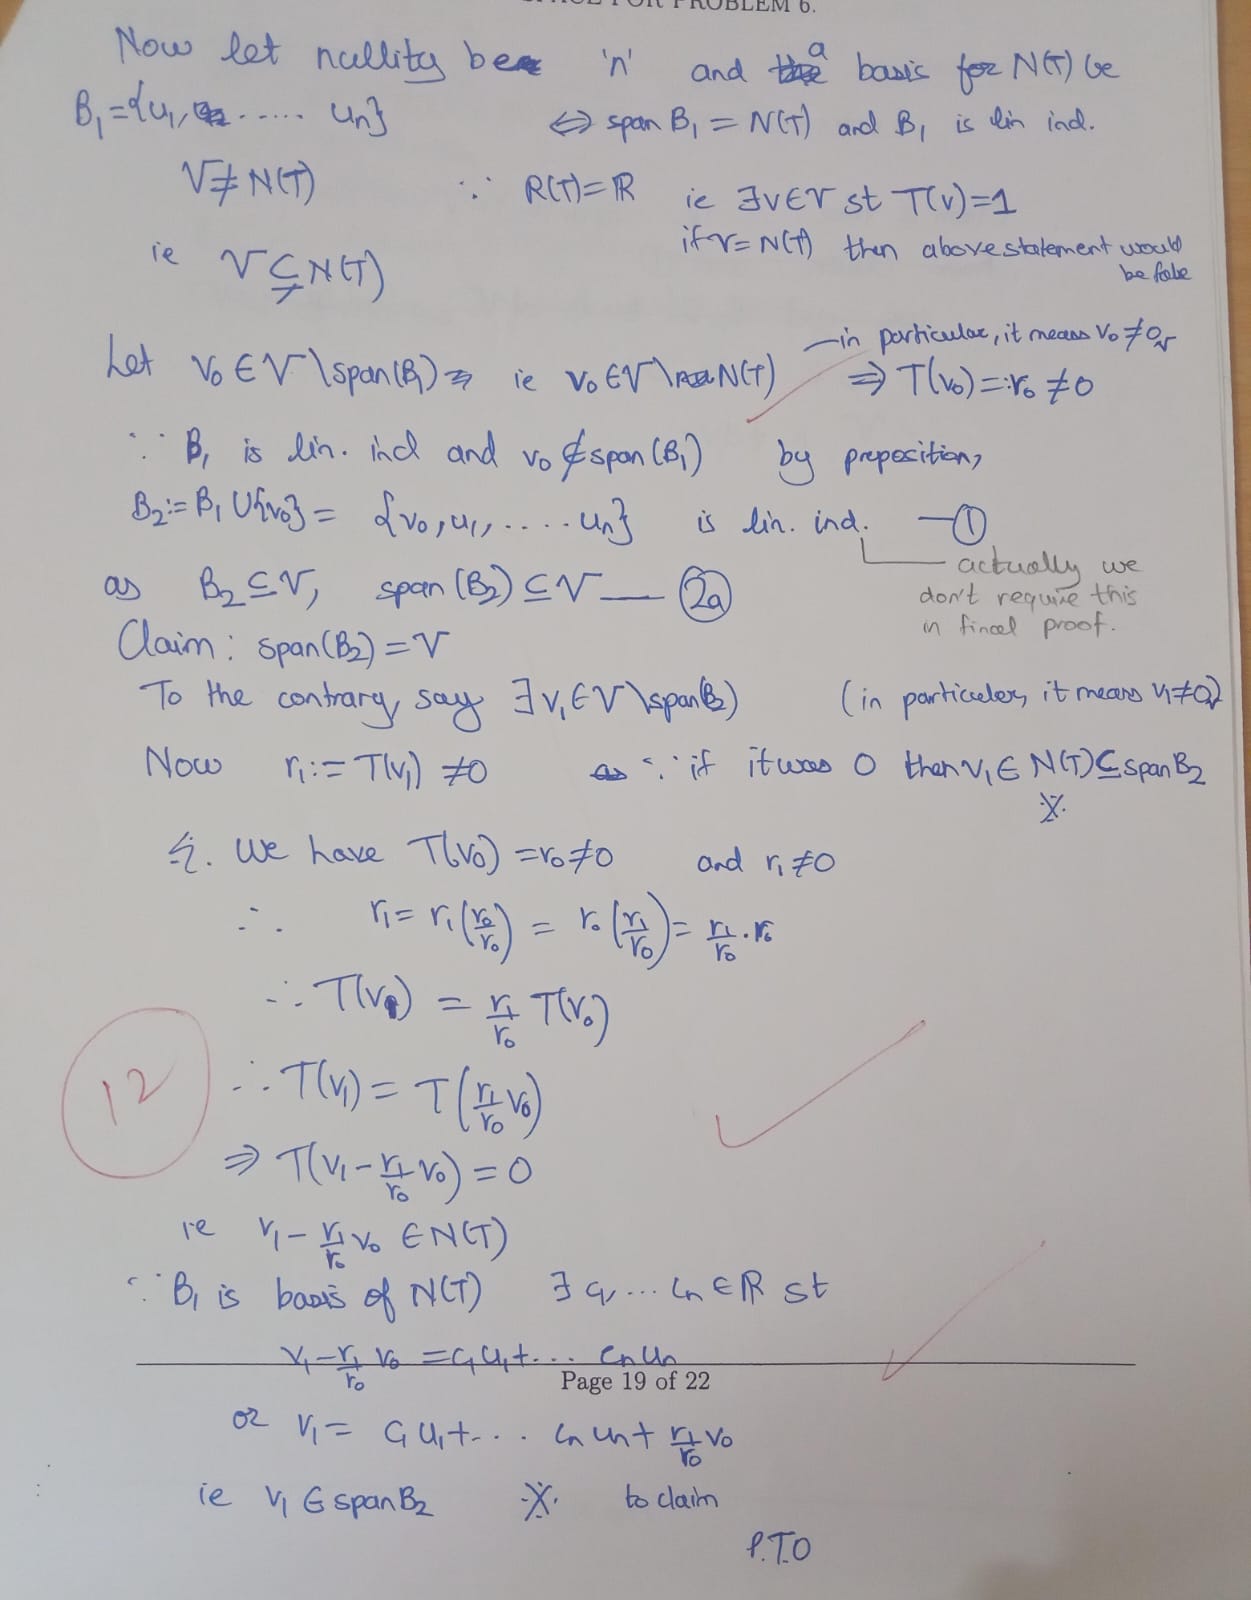 SPACE FOR PROBLEM 6.
Now let nullity be 'n' and a basis for N(T) be
B₁={u₁, ..... uₙ} ⇔ span B₁ = N(T) and B₁ is lin ind.
V≠N(T) ∵ R(T)=ℝ ie ∃v∈V st T(v)=1
if V=N(T) then above statement would be false
ie V⊊N(T)
Let v₀∈V\span(B₁) ie v₀∈V\N(T) —in particular, it means v₀≠0ᵥ
⇒ T(v₀)=:r₀≠0
∵ B₁ is lin. ind and v₀∉span(B₁) by preposition,
B₂:=B₁∪{v₀} = {v₀,u₁,.....uₙ} is lin. ind. —①
actually we
don't require this
in final proof.
as B₂⊆V, span(B₂)⊆V — 2a
Claim: span(B₂)=V
To the contrary, say ∃v₁∈V\span(B₂) (in particular, it means v₁≠0ᵥ)
Now r₁:=T(v₁)≠0 ∵ if it was 0 then v₁∈N(T)⊆spanB₂
※
We have T(v₀)=r₀≠0 and r₁≠0
∴ r₁=r₁(r₀/r₀) = r₀(r₁/r₀) = r₁/r₀ . r₀
∴ T(v₁) = r₁/r₀ T(v₀)
12
∴ T(v₁) = T(r₁/r₀ v₀)
⇒ T(v₁ - r₁/r₀ v₀) = 0
ie v₁ - r₁/r₀ v₀ ∈N(T)
∵ B₁ is basis of N(T) ∃ c₁...cₙ∈ℝ st
v₁ - r₁/r₀ v₀ = c₁u₁+... cₙuₙ
Page 19 of 22
or v₁ = c₁u₁+... cₙuₙ + r₁/r₀ v₀
ie v₁∈spanB₂ ※ to claim
P.T.O